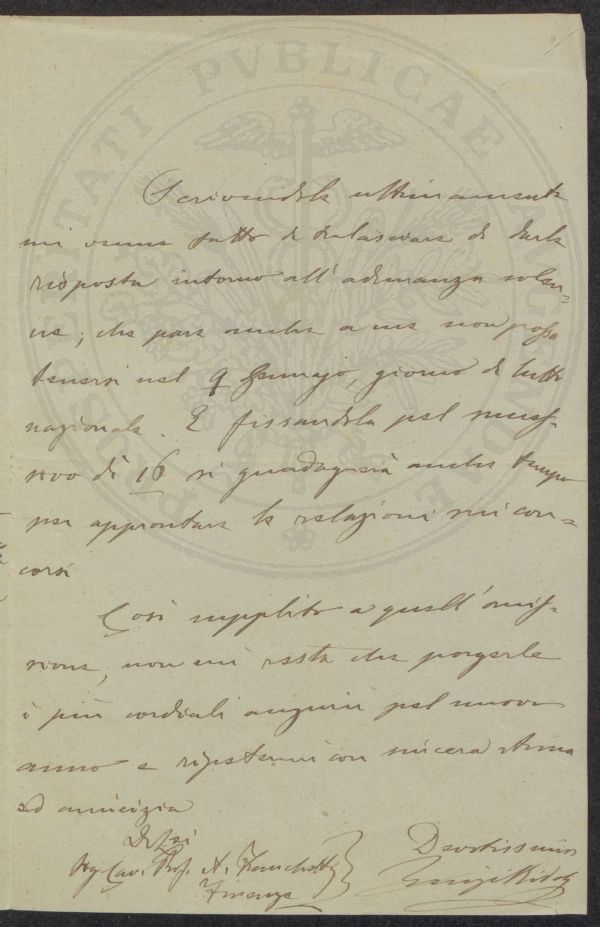 PROSPERITATI PVBLICAE AVGENDAE
Scrivendole ultimamente
mi venne fatto di tralasciare di darle
risposta intorno all' adunanza solen=
ne; che pare anche a me non possa
tenersi nel 9 Gennajo, giorno di lutto
nazionale. E fissandola pel succes=
sivo dì 16 si guadagnerà anche tempo
per approntare le relazioni sui con=
corsi
Così supplito a quell' omis=
sione, non mi resta che porgerle
i più cordiali augurii pel nuovo
anno e ripetermi con sincera stima
ed amicizia
Di Lei
Devotissimo
Sig Cav. Prof. A.
Firenze
Luigi